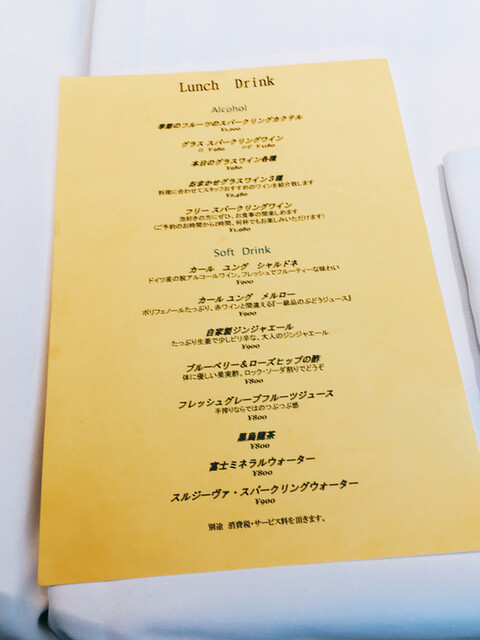 Lunch Drink
Alcohol
季節のフルーツのスパークリングカクテル
¥1,200
グラス スパークリングワイン
¥980 ¥1180
本日のグラスワイン各種
¥980
おまかせグラスワイン3種
料理に合わせてスタッフおすすめのワインを紹介致します
¥2,480
フリー スパークリングワイン
泡好きの方にぜひ、お食事の間楽しめます
(ご予約のお時間から2時間、何杯でもお楽しみいただけます)
¥1,980
Soft Drink
カール ユング シャルドネ
ドイツ産の脱アルコールワイン。フレッシュでフルーティーな味わい
¥900
カール ユング メルロー
ポリフェノールたっぷり、赤ワインと間違える『一級品のぶどうジュース』
¥900
自家製ジンジャエール
たっぷり生姜で少しピリ辛な、大人のジンジャエール
¥900
ブルーベリー&ローズヒップの酢
体に優しい果実酢。ロック・ソーダ割りでどうぞ
¥800
フレッシュグレープフルーツジュース
手搾りならではのつぶつぶ感
¥800
黒烏龍茶
¥800
富士ミネラルウォーター
¥800
スルジーヴァ・スパークリングウォーター
¥900
別途 消費税・サービス料を頂きます。